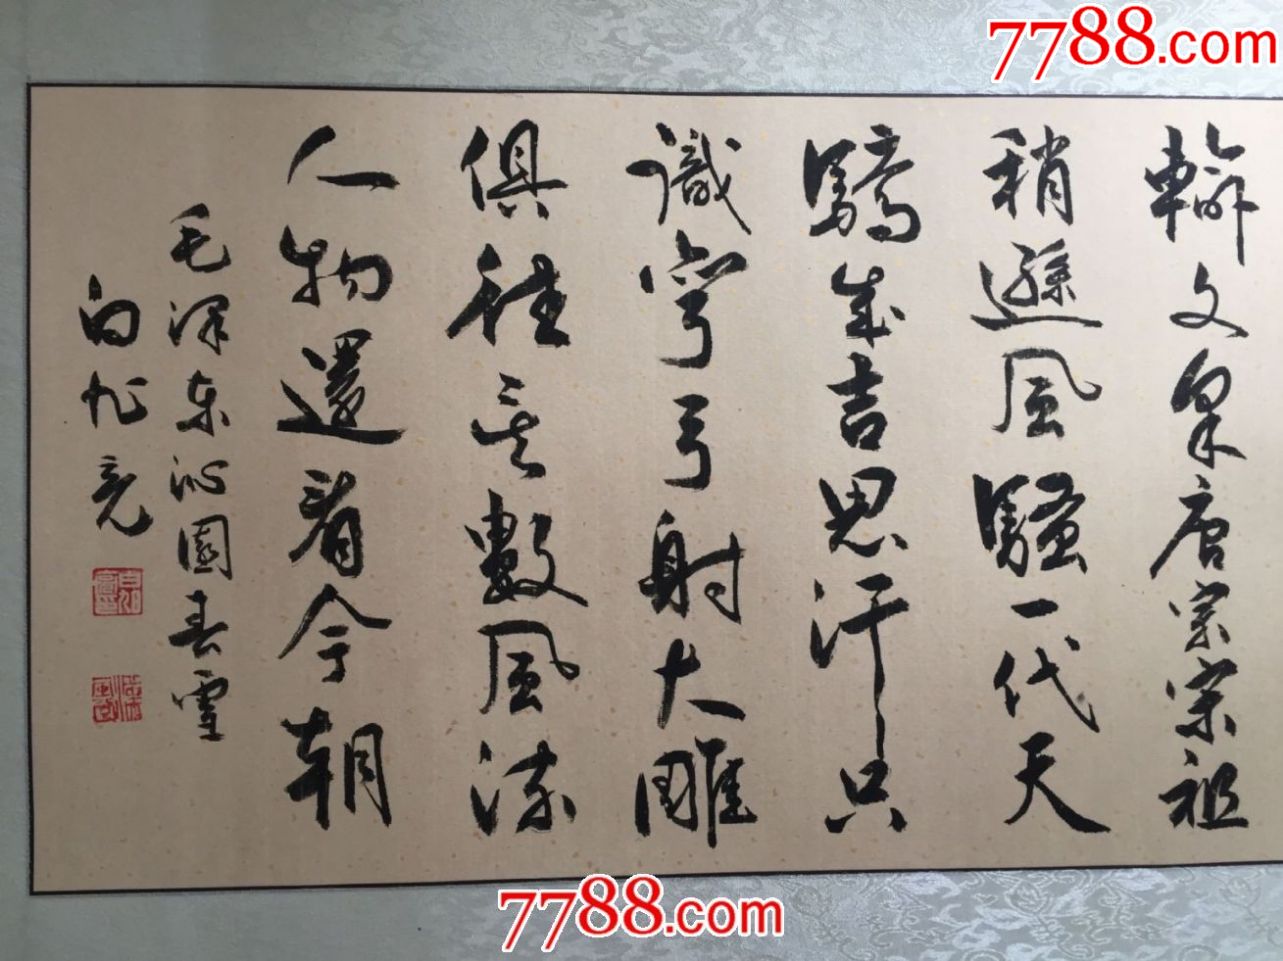 7788.com
輸文采唐宗宋祖
稍遜風騷一代天
驕成吉思汗只
識彎弓射大雕
俱往矣數風流
人物還看今朝
毛澤東沁園春雪
白旭亮
7788.com